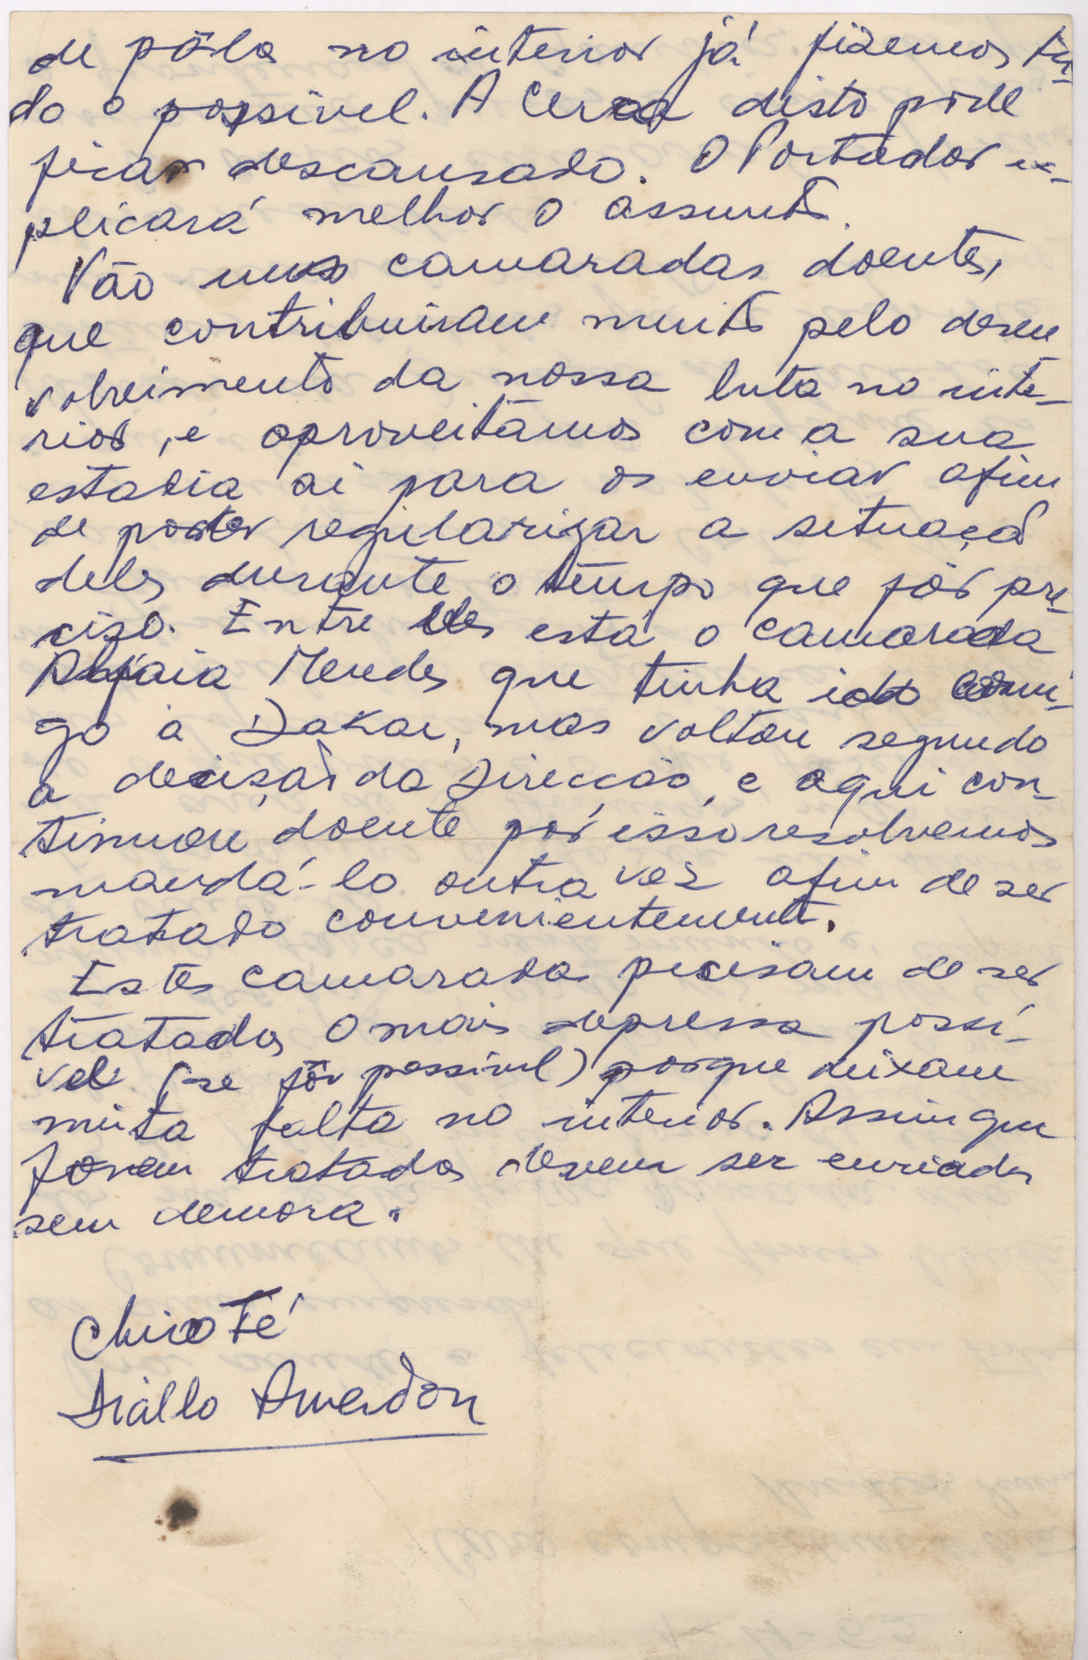 de pôla no interior já fizemos tu-
do o possivel. A Cerca disto pode
ficar descansado. O Portador ex-
plicará melhor o assunto.
Vão uns camaradas doentes,
que contribuiram muito pelo desen
volvimento da nossa luta no inte-
rior, e aproveitamos com a sua
estadia ai para os enviar afim
de poder regularizar a situação
deles durante o tempo que fôr pre-
ciso. Entre eles está o camarada
Mendes que tinha ido comi-
go a Dakar, mas voltou segundo
a decisão da Direcção, e aqui con-
tinuou doente por isso resolvemos
mandá-lo outra vez afim de ser
tratado convenientemente.
Estes camaradas precisam de ser
tratados o mais depressa possi-
vel (se fôr possivel) porque deixam
muita falta no interior. Assim que
forem tratados devem ser enviados
sem demora.
Chico Té
Diallo Amadou